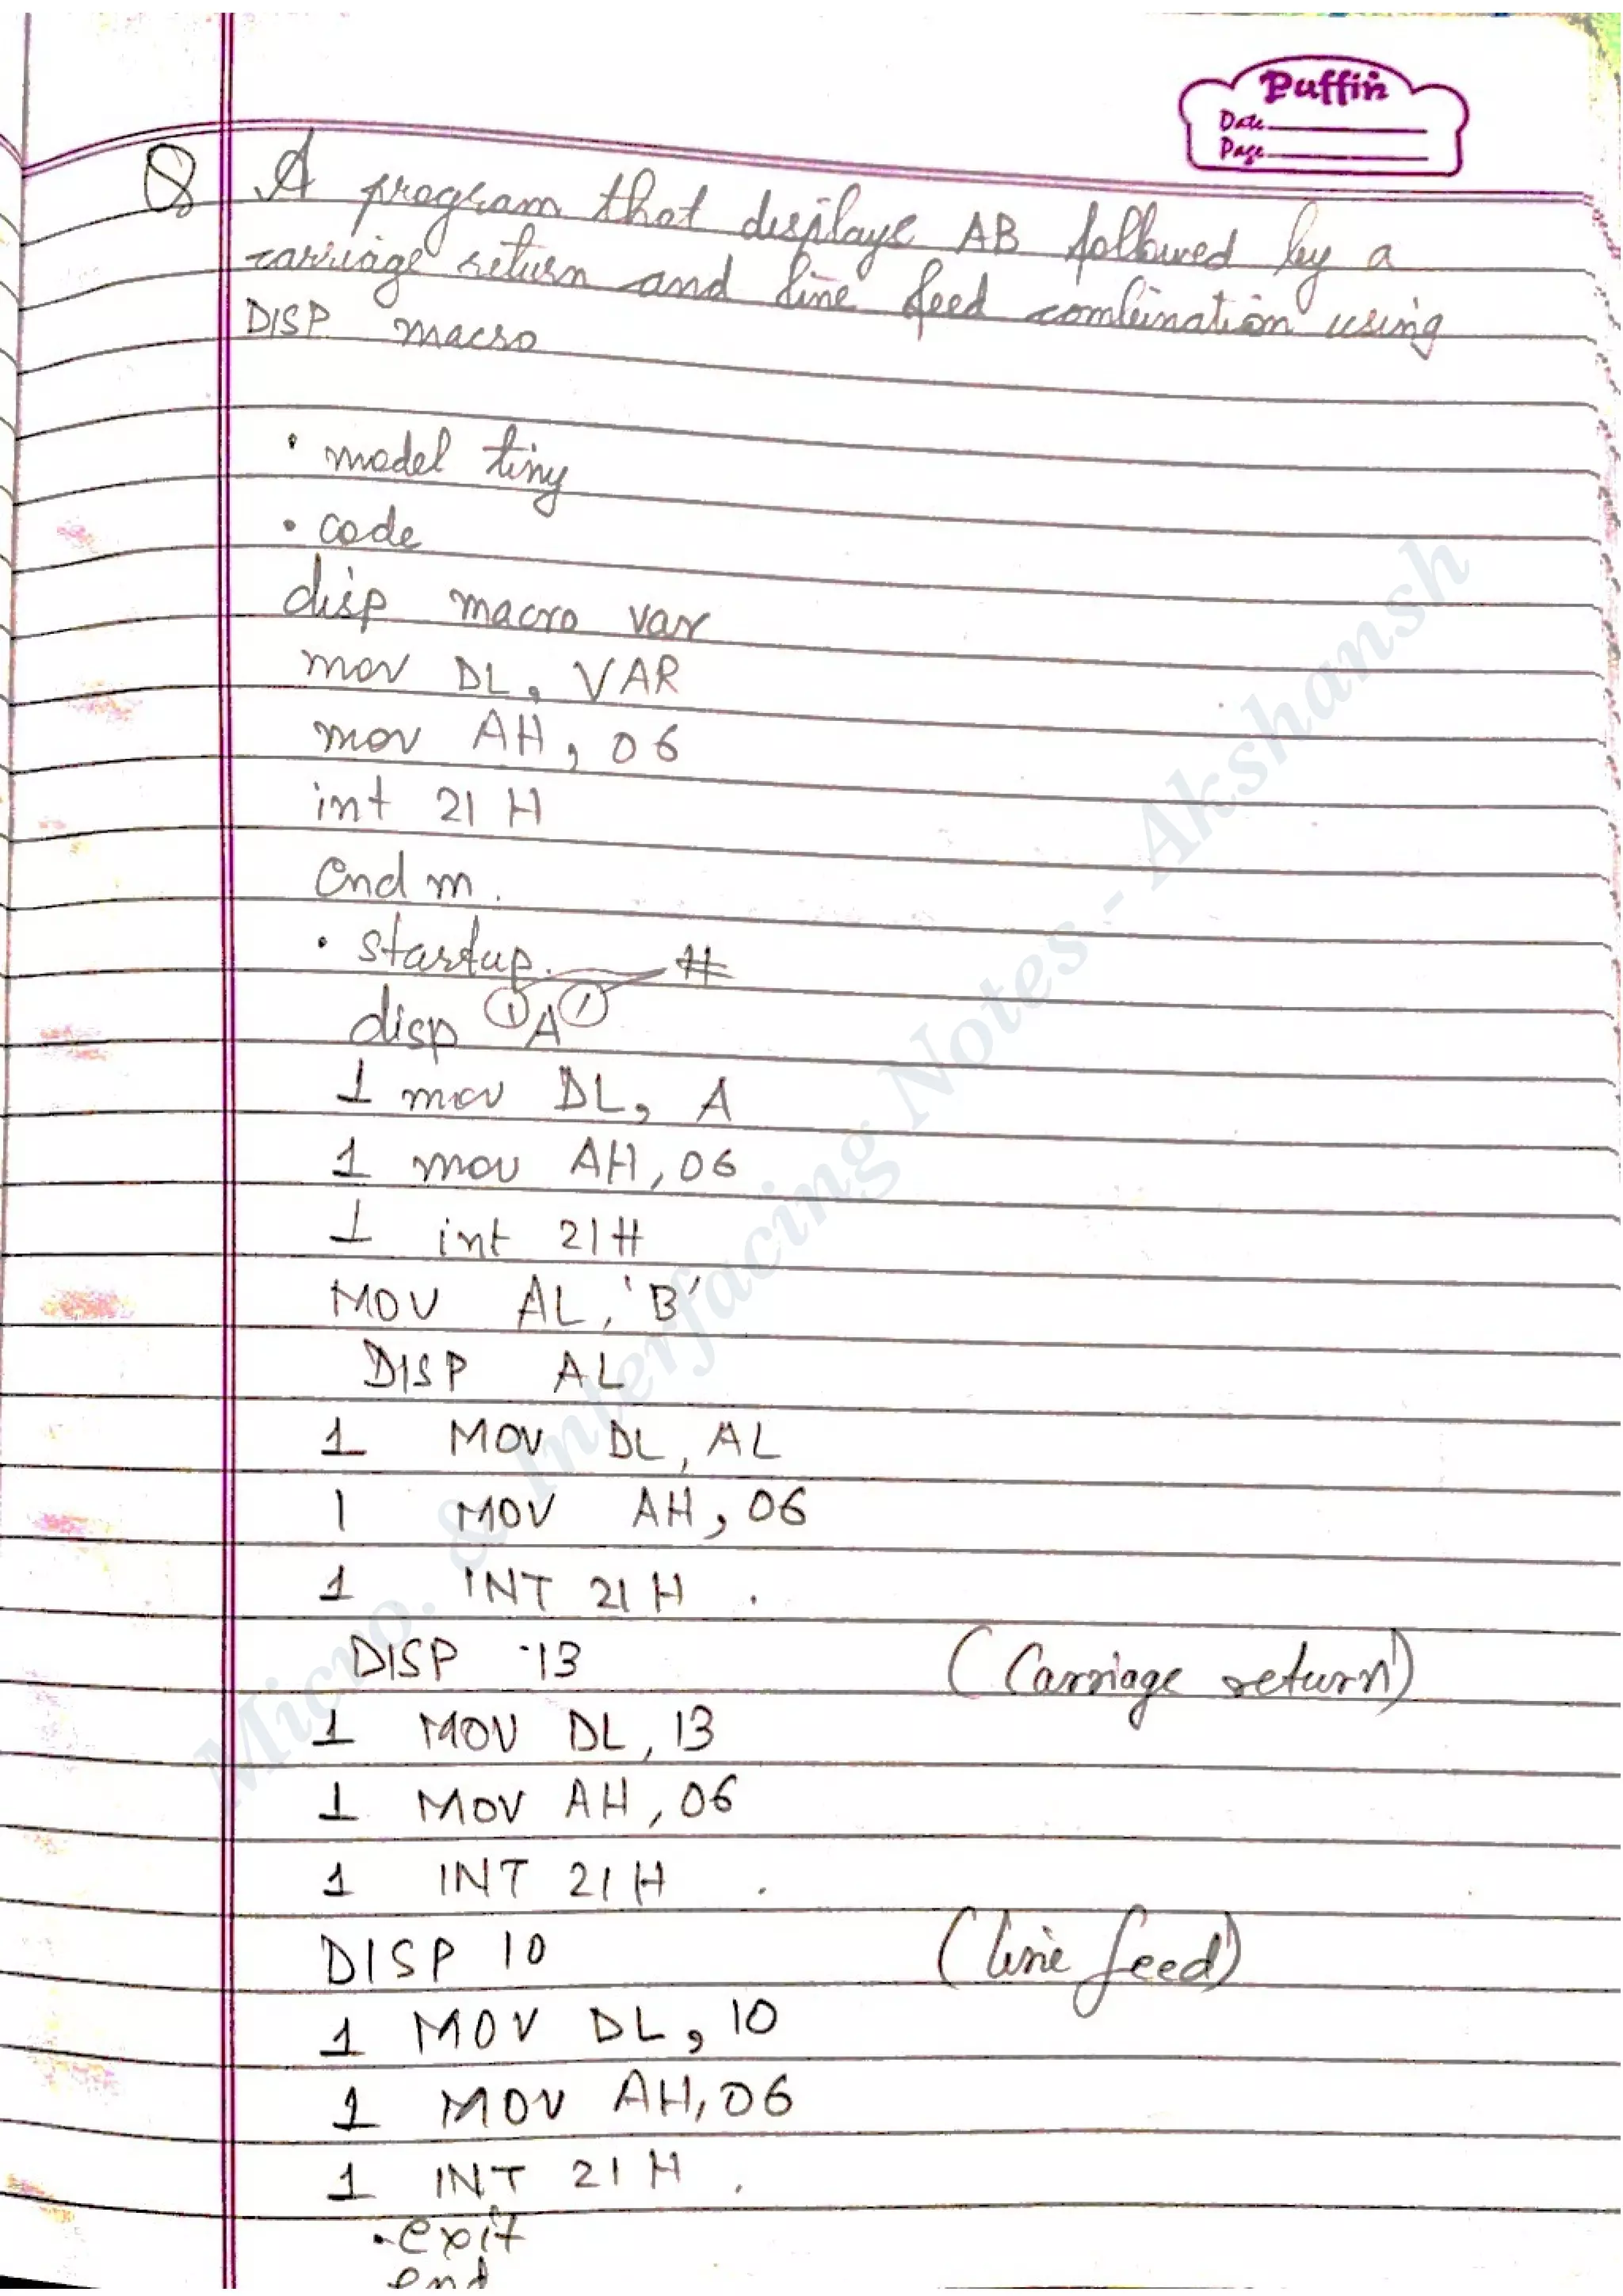 Puffin
Date
Page
Q A program that displays AB followed by a
carriage return and line feed combination using
DISP macro
. model tiny
. code
disp macro var
mov DL, VAR
mov AH, 06
int 21 H
end m.
. startup. #
disp 'A'
1 mov DL, A
1 mov AH, 06
1 int 21H
MOV AL, 'B'
DISP AL
1 MOV DL, AL
1 MOV AH, 06
1 INT 21 H .
DISP 13 (Carriage return)
1 MOV DL, 13
1 MOV AH, 06
1 INT 21 H .
DISP 10 (line feed)
1 MOV DL, 10
1 MOV AH, 06
1 INT 21 H .
.exit
end
Micro. & Interfacing Notes - Akshansh